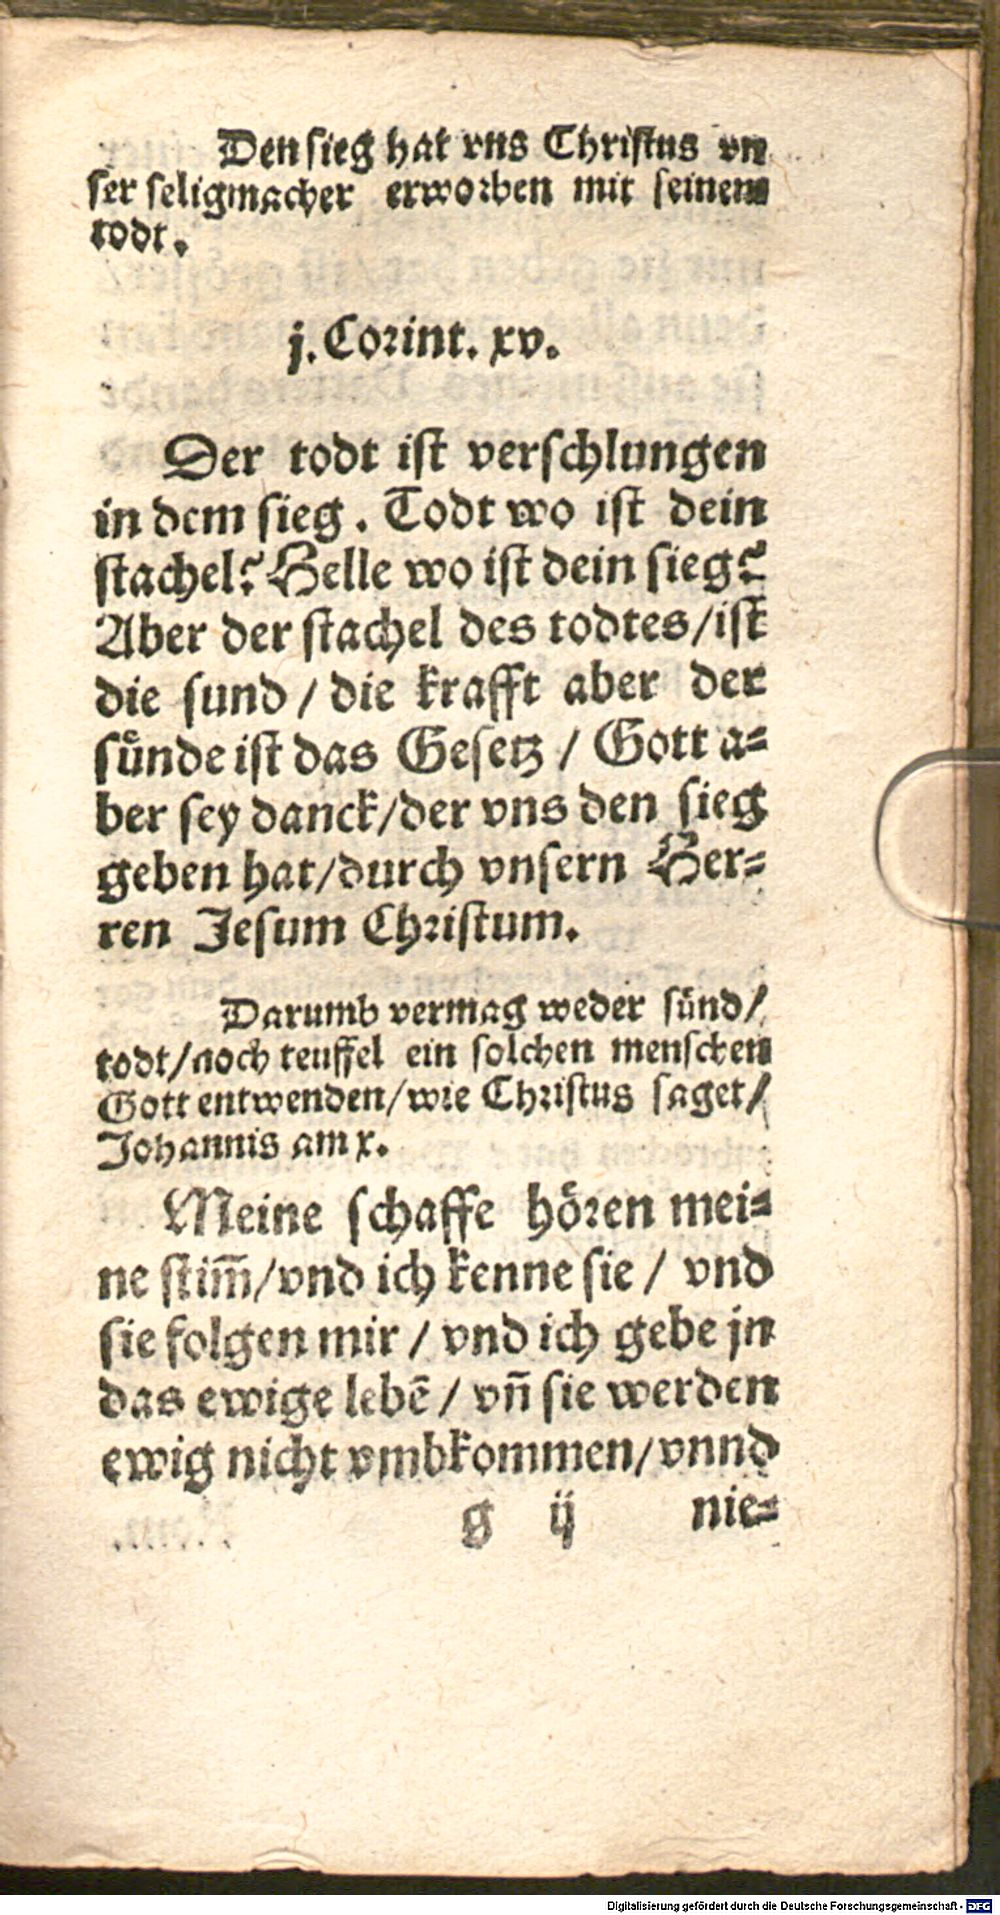 Den sieg hat vns Christus vn
ser seligmacher erworben mit seinem
todt.
j. Corint. xv.
Der todt ist verschlungen
in dem sieg. Todt wo ist dein
stachel? Helle wo ist dein sieg?
Aber der stachel des todtes/ist
die sund / die krafft aber der
sünde ist das Gesetz / Gott a-
ber sey danck/der vns den sieg
geben hat/durch vnsern Her-
ren Jesum Christum.
Darumb vermag weder sünd/
todt/noch teuffel ein solchen menschen
Gott entwenden/wie Christus saget/
Johannis am x.
Meine schaffe hören mei-
ne stim̃/vnd ich kenne sie / vnd
sie folgen mir / vnd ich gebe jn
das ewige lebẽ / vñ sie werden
ewig nicht vmbkommen/vnnd
g ij nie-
Digitalisierung gefördert durch die Deutsche Forschungsgemeinschaft - DFG